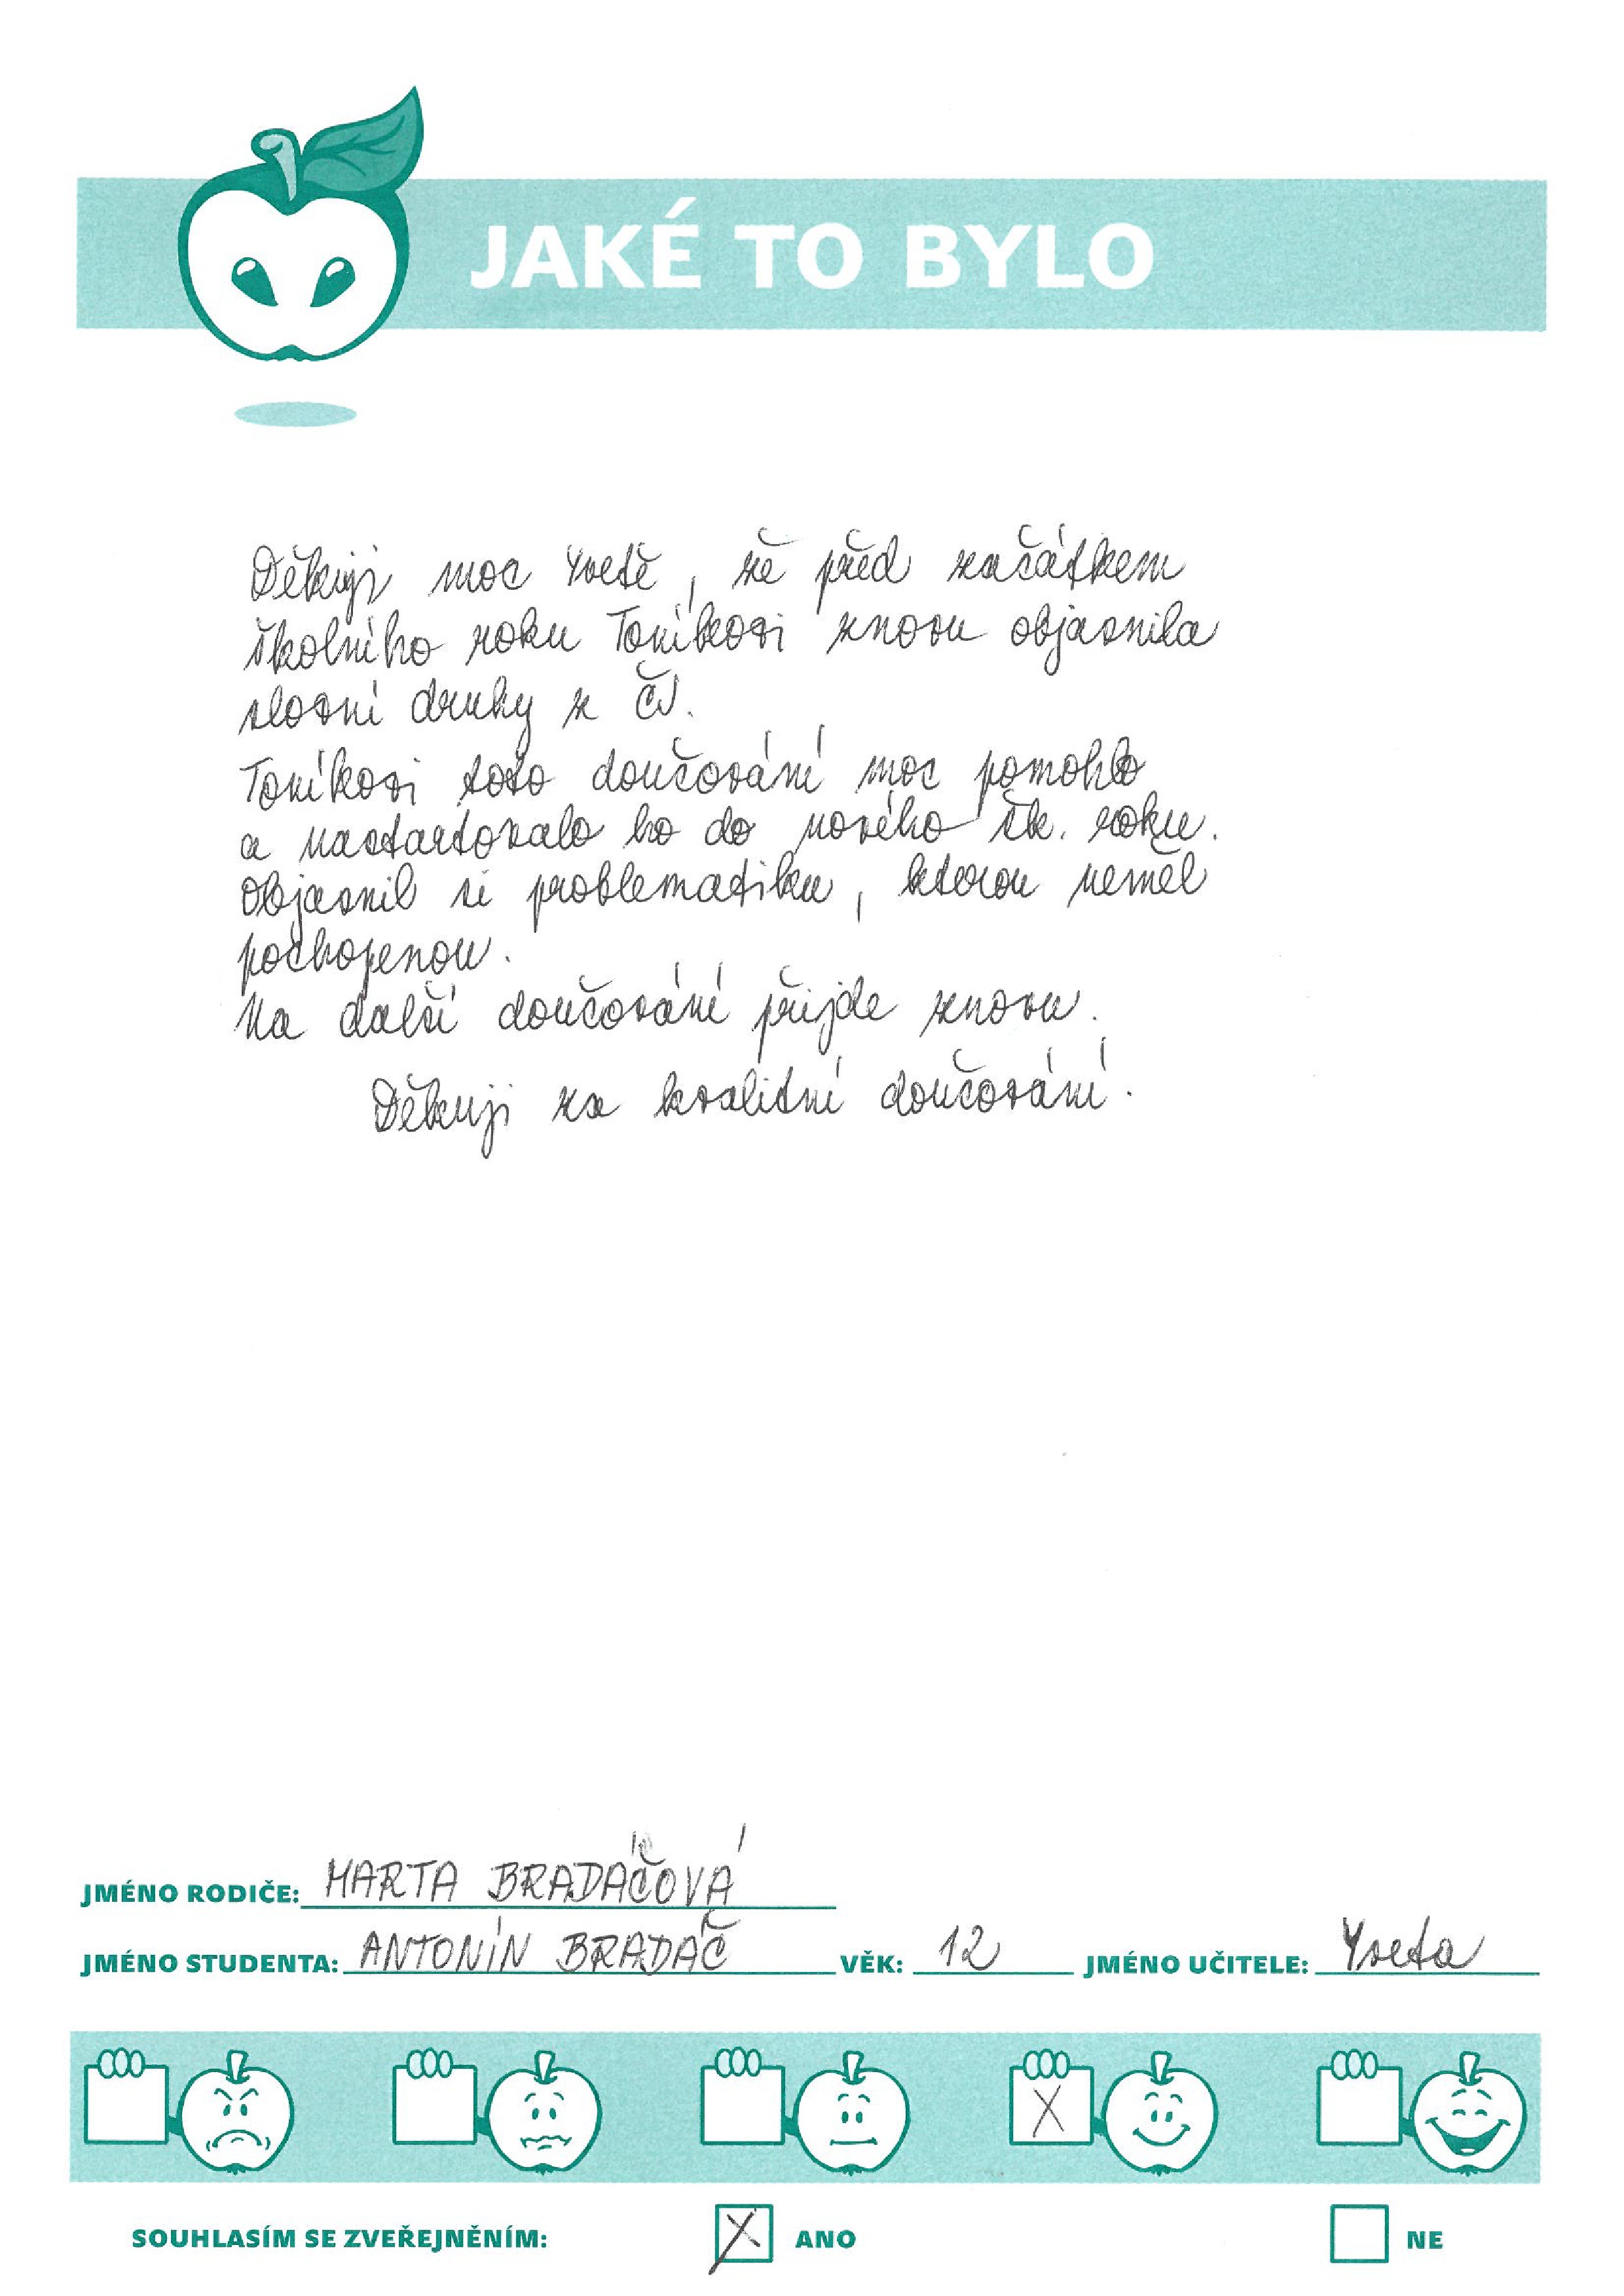 JAKÉ TO BYLO
Děkuji moc Yvetě, že před začátkem
školního roku Toníkovi znovu objasnila
slovní druhy z ČJ.
Toníkovi toto doučování moc pomohlo
a nastartovalo ho do nového šk. roku.
Objasnil si problematiku, kterou neměl
pochopenou.
Na další doučování přijde znovu.
Děkuji za kvalitní doučování.
JMÉNO RODIČE: MARTA BRADÁČOVÁ
JMÉNO STUDENTA: ANTONÍN BRADÁČ VĚK: 12 JMÉNO UČITELE: Yveta
X
SOUHLASÍM SE ZVEŘEJNĚNÍM: X ANO NE